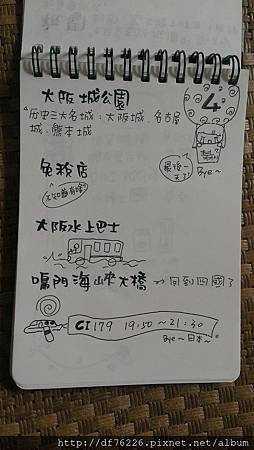 4
大阪城公園
历史三大名城：大阪城、名古屋
城、熊本城
Bye~
免稅店
最後一
天了!
不知道有啥?
大阪水上巴士
鳴門海峽大橋 → 回到四國了
CI 179 19:50~21:30
Bye~日本~
http://df76226.pixnet.net/album